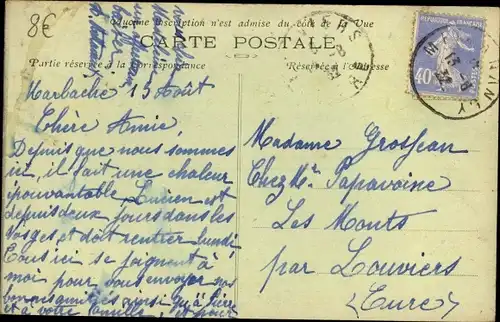 8€
Aucune inscription n'est admise du côté de la Vue
CARTE POSTALE
Partie réservée à la correspondance
Réservée à l'adresse
REPUBLIQUE FRANCAISE
40
Marbache 13 Août
Chère Amie,
Depuis que nous sommes
ici, il fait une chaleur
épouvantable, Lucien est
depuis deux jours dans les
Vosges et doit rentrer lundi
Tous ici se joignent à
moi pour vous envoyer nos
bonnes amitiés ainsi qu'à
et à votre famille, et pour
Madame Grosjean
Chez Mr Papavoine
Les Monts
par Louviers
(Eure)